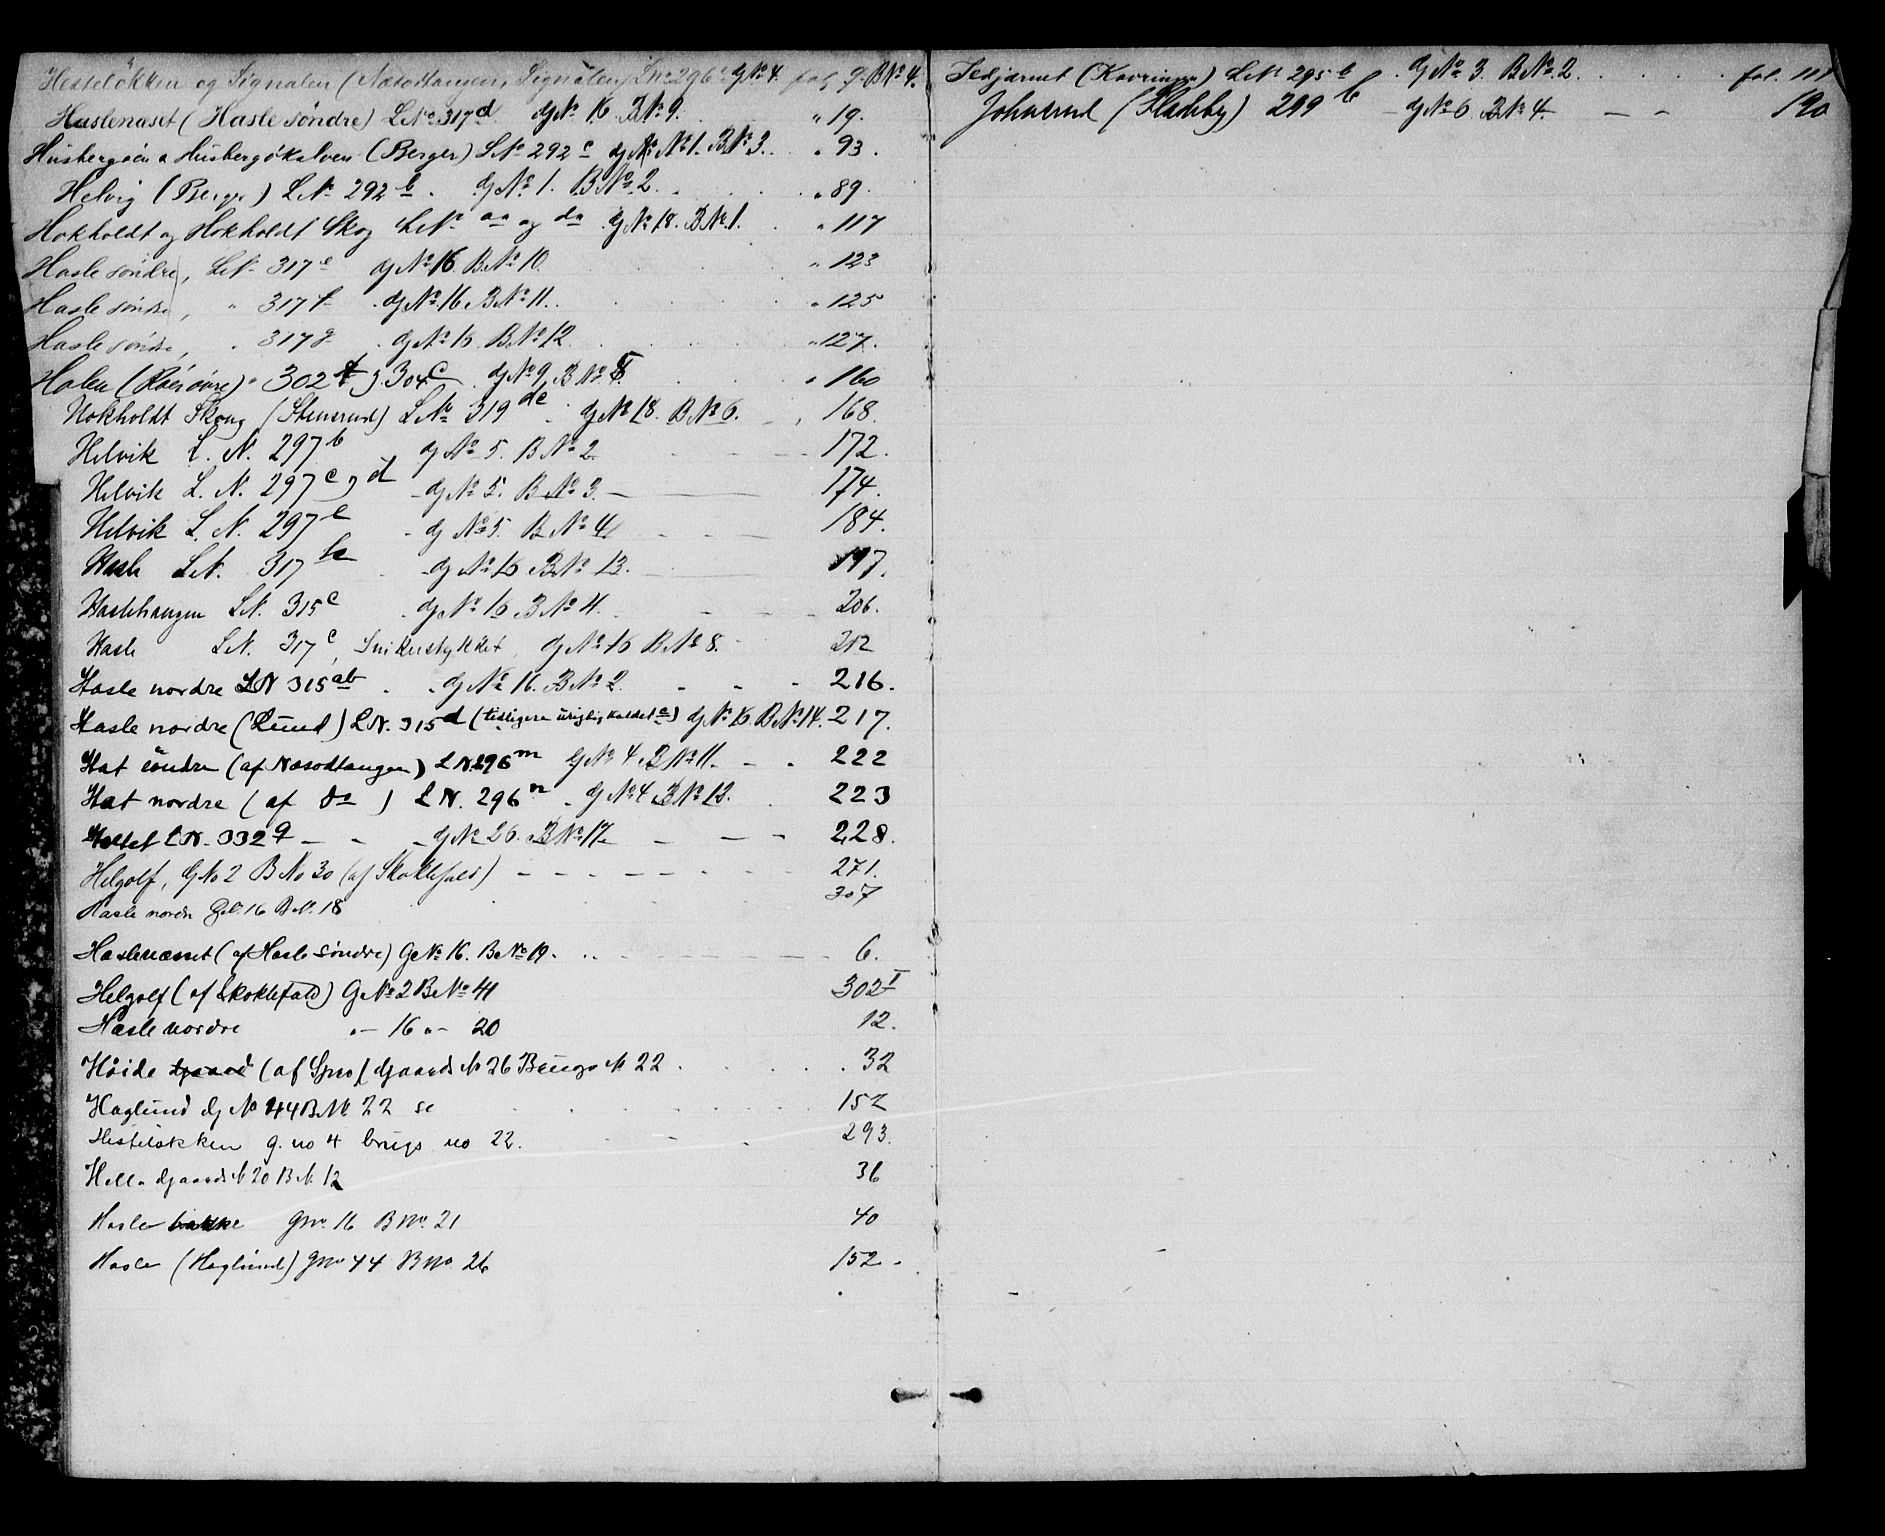 Hesteløkken og Signalen (Næsodtangens Signalen) L.No 296 c G No 4. fol. 9. B No 4.
Haslenæset (Hasle søndre) L.No 317 d G No 16 B No 9. " 19.
Husbergøen & Husbergøkalven (Berger) L.No 292 c G No 1. B No 3. " 93.
Helvig (Berger) L.No 292 b. G No 1. B No 2. " 89.
Hokholdt og Hokholdt Skog L.No aa og da G No 18. B No 1. " 117
Hasle søndre, L.No 317 e G No 16. B No 10. " 123
Hasle søndre, " 317 f G No 16 B No 11. " 125
Hasle søndre, " 317 g G No 16 B No 12 " 127.
Holen (Røer øvre) 302 304 c G No 9, B No " 160
Hokholdt Skoug (Stenerud) L No 319 de G No 18. B No 6. 168.
Helvik L. N. 297 b G No 5. B No 2 172.
Helvik L. N. 297 c & d G No 5. B No 3. 174.
Helvik L. N. 297 e G No 5. B No 4 184.
Hasle L.N. 317 h G No 16 B No 13. 197.
Haslehaugen L.N. 315 c G No 16 B No 4. 206.
Hasle L.N. 317 c, Snikerstykket G No 16 B No 8. 212
Hasle nordre L N 315 ab G No 16. B No 2. 216.
Hasle nordre (Lund) L N. 315 d (tidligere urigtig kaldet c) G No 16 B No 14. 217.
Hat søndre (af Næsodtangen) L N 296 m G No 4 B No 11. 222
Hat nordre (af Do) L N. 296 n G No 4 B No 12. 223
Holtet L N. 332 q G No 26. B No 17. 228.
Helgolf, G No 2 B No 30 (af Skoklefald) 271.
Hasle nordre G.N. 16 B.N. 18 307
Haslenæsset (af Hasle søndre) G No 16. B No 19. 6.
Helgolf (af Skoklefald) G No 2 B No 41 302 I
Hasle nordre "— 16 "— 20 12.
Høide (af Spro) Gaards N 26 Brugs N 22. 32
Haglund G No 44 B No 22 se 152
Hesteløkken g. no 4 brugs no 22. 293.
Hella Gaards N 20 B N. 12 36
Hasle bakke Gno. 16 B no. 21 40
Hasle (Haglund) Gno 44 B no. 26 152.
Ildjærnet (Kavringen) L.No 295 b G No 3. B No 2. fol. 111
Johnsrud (Fladeby) 299 b G No 6 B No 4. 190